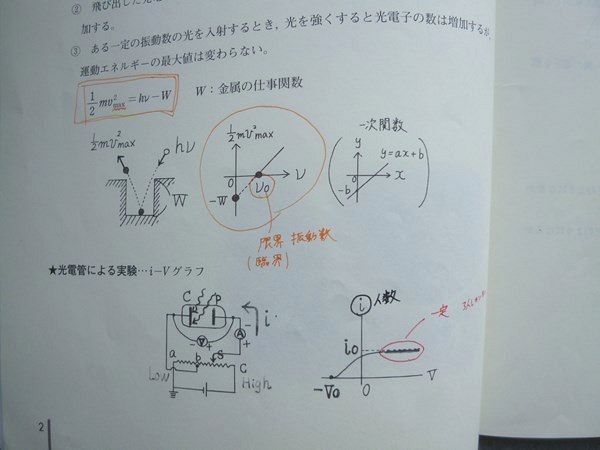 ② 飛び出した
加する。
③ ある一定の振動数の光を入射するとき，光を強くすると光電子の数は増加するが，
運動エネルギーの最大値は変わらない。
1/2 mv²max = hν − W
W：金属の仕事関数
1/2 mv²max
hν
W
1/2 mv²max
0
ν
−W
ν0
限界振動数
(臨界)
一次関数
y
y=ax+b
0
x
−b
★光電管による実験…i–Vグラフ
C
P
i
V
A
a
b
S
C
Low
High
i
人数
一定
i0
−V0
0
V
2